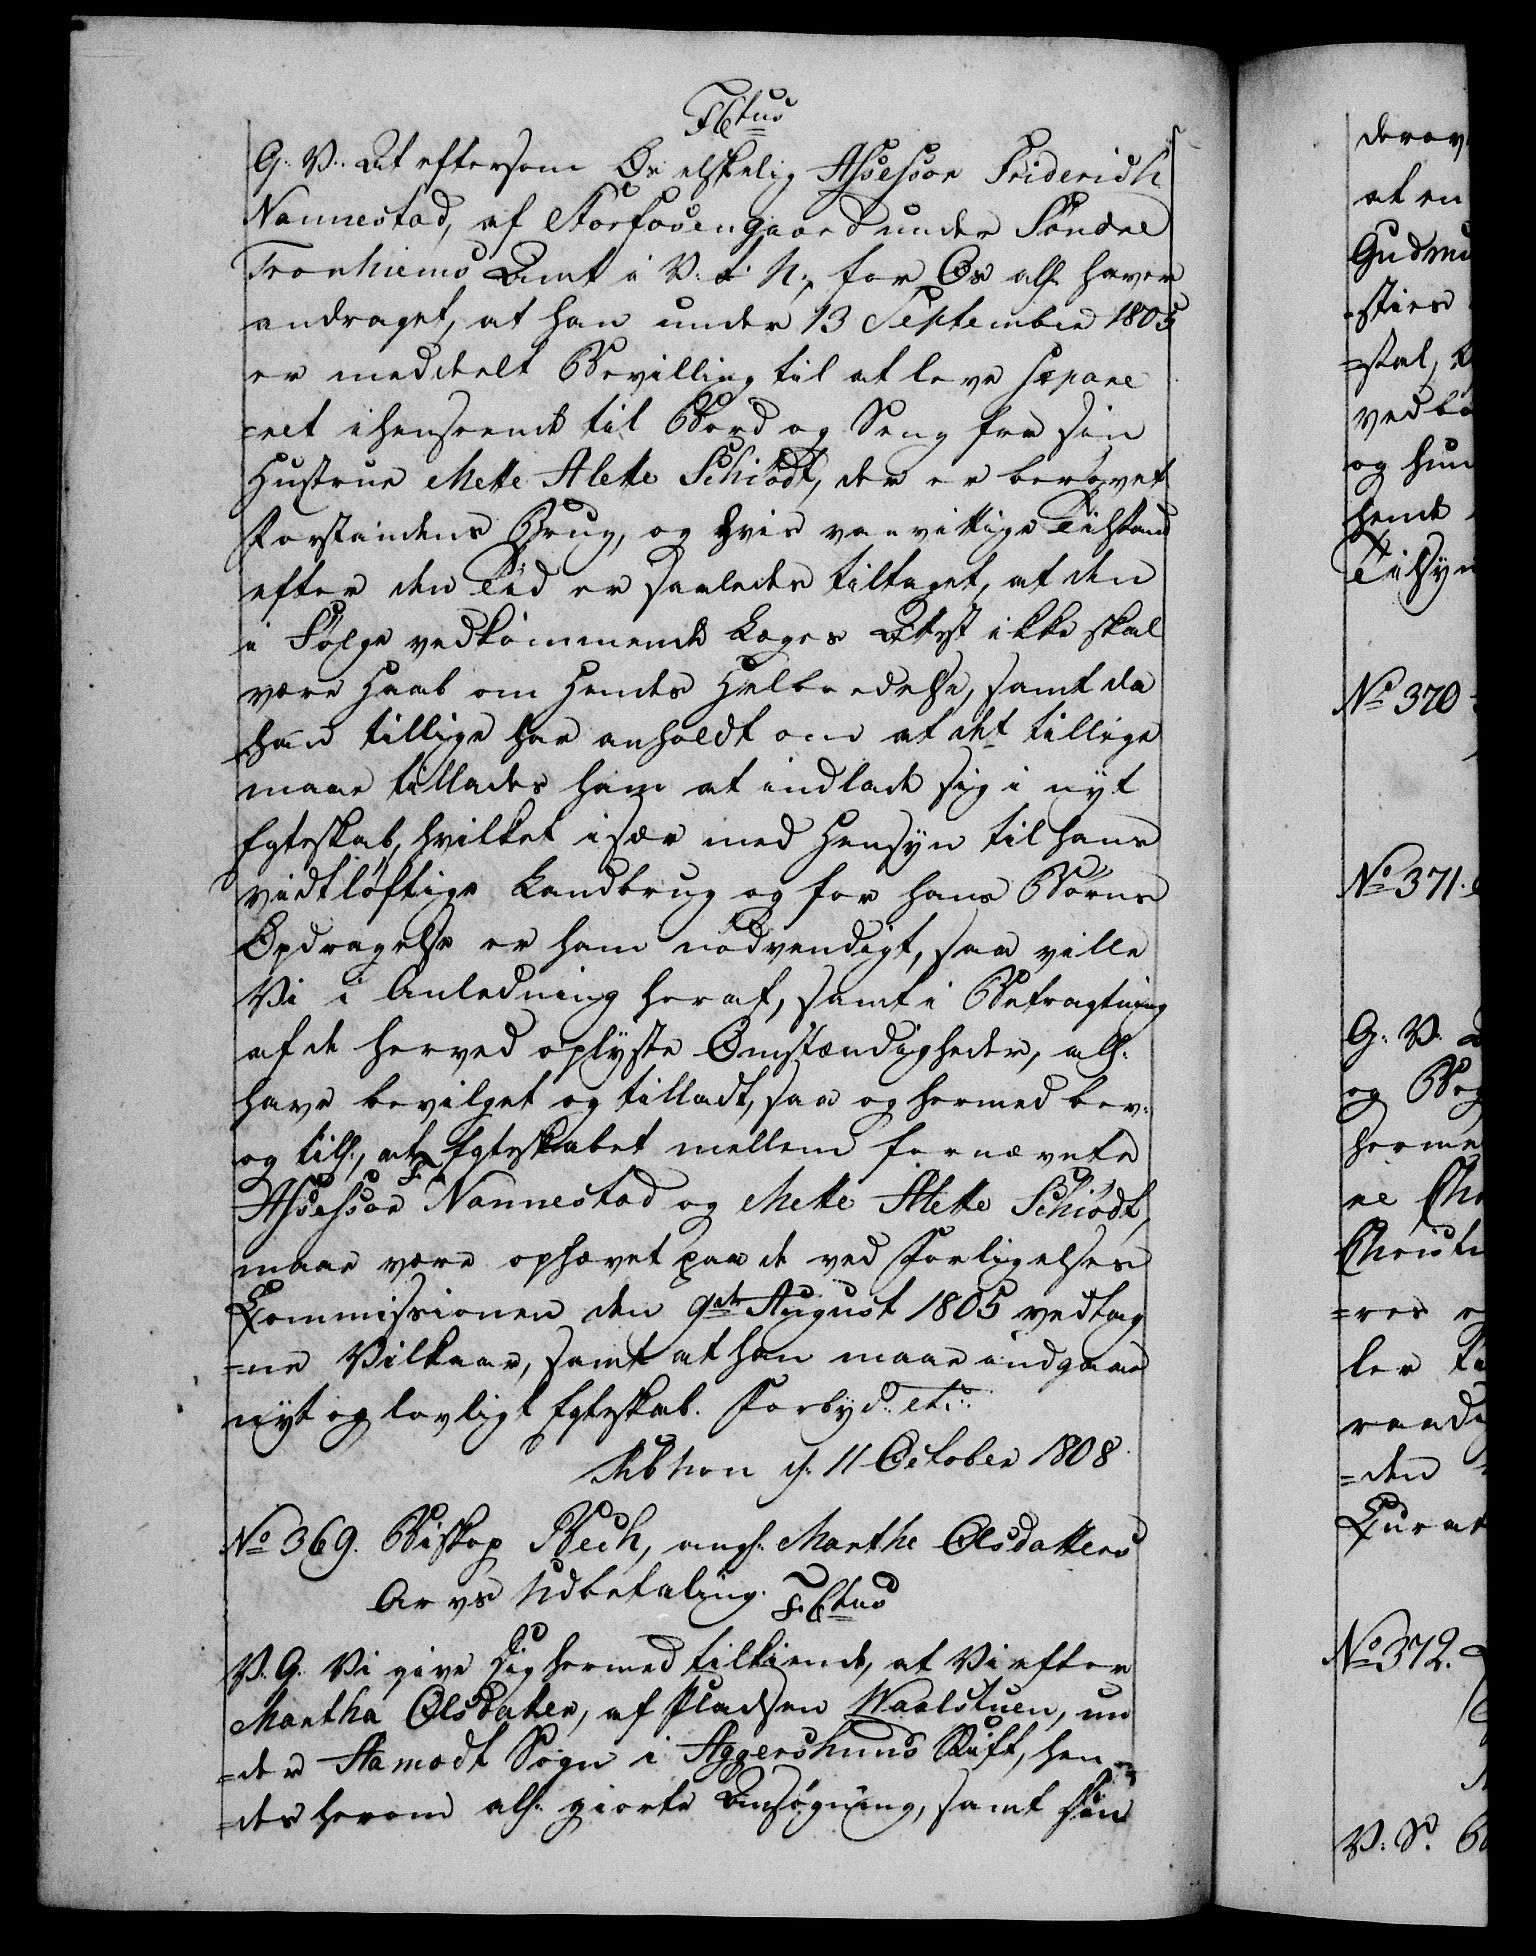 F6tus
G. V. At eftersom Os elskelig Assessor Friderich
Nannestad, af Storfosengaard under Søndre
Tronhiems Amt i V. R. N., for Os all. haver
andraget, at han under 13 September 1805
er meddeelt Bevilling til at leve separe
=ret i henseende til Bord og Seng fra sin
Hustrue Mette Alette Schiødt, der er berøvet
Forstandens Brug, og hvis vanvittige Tilstand
efter den Tid er saaledes tiltaget, at den
i Følge vedkommende Læges Attest ikke skal
være Haab om Hendes Helbredelse, samt da
han tillige har anholdt om at det tillige
maae tillades ham at indlade sig i nyt
Egteskab, hvilket især med Hensyn til hans
vidtløftige Landbrug og for hans Børns
Opdragelse er ham nødvendigt, saa ville
Vi i Anledning heraf, samt i Betragtning
af de herved oplyste Omstændigheder, all.
have bevilget og tilladt, saa og hermed bev:
og till., at Egteskabet mellem fornævnte
Assessor F. Nannestad og Mette Alette Schiødt,
maae være ophævet paa de ved Forligelses
Commissionen den 9de August 1805 vedtag
=ne Vilkaar, samt at han maae indgaae
nyt og lovligt Egteskab. Forbyd. etc.
Kbhvn d. 11 October 1808.
No 369. Biskop Bech, angl. Marthe Olsdatters
Arvs Udbetaling. F6tus
V. G. Vi give Dig hermed tilkiende, at Vi efter
Martha Olsdatter, af Pladsen Waalstuen, un
=der Aamodt Sogn i Aggershuus Stift, hen
=des herom all. giorte Ansøgning, samt Din
derov
at en
Gudmu
=stal,
og hun
hende
Tilsyn
No 370
No 371.
G. V.
og Beg
herme
ne Chr
Christi
=res
ler
raadi
=den
Curat
No 372.
V. S.